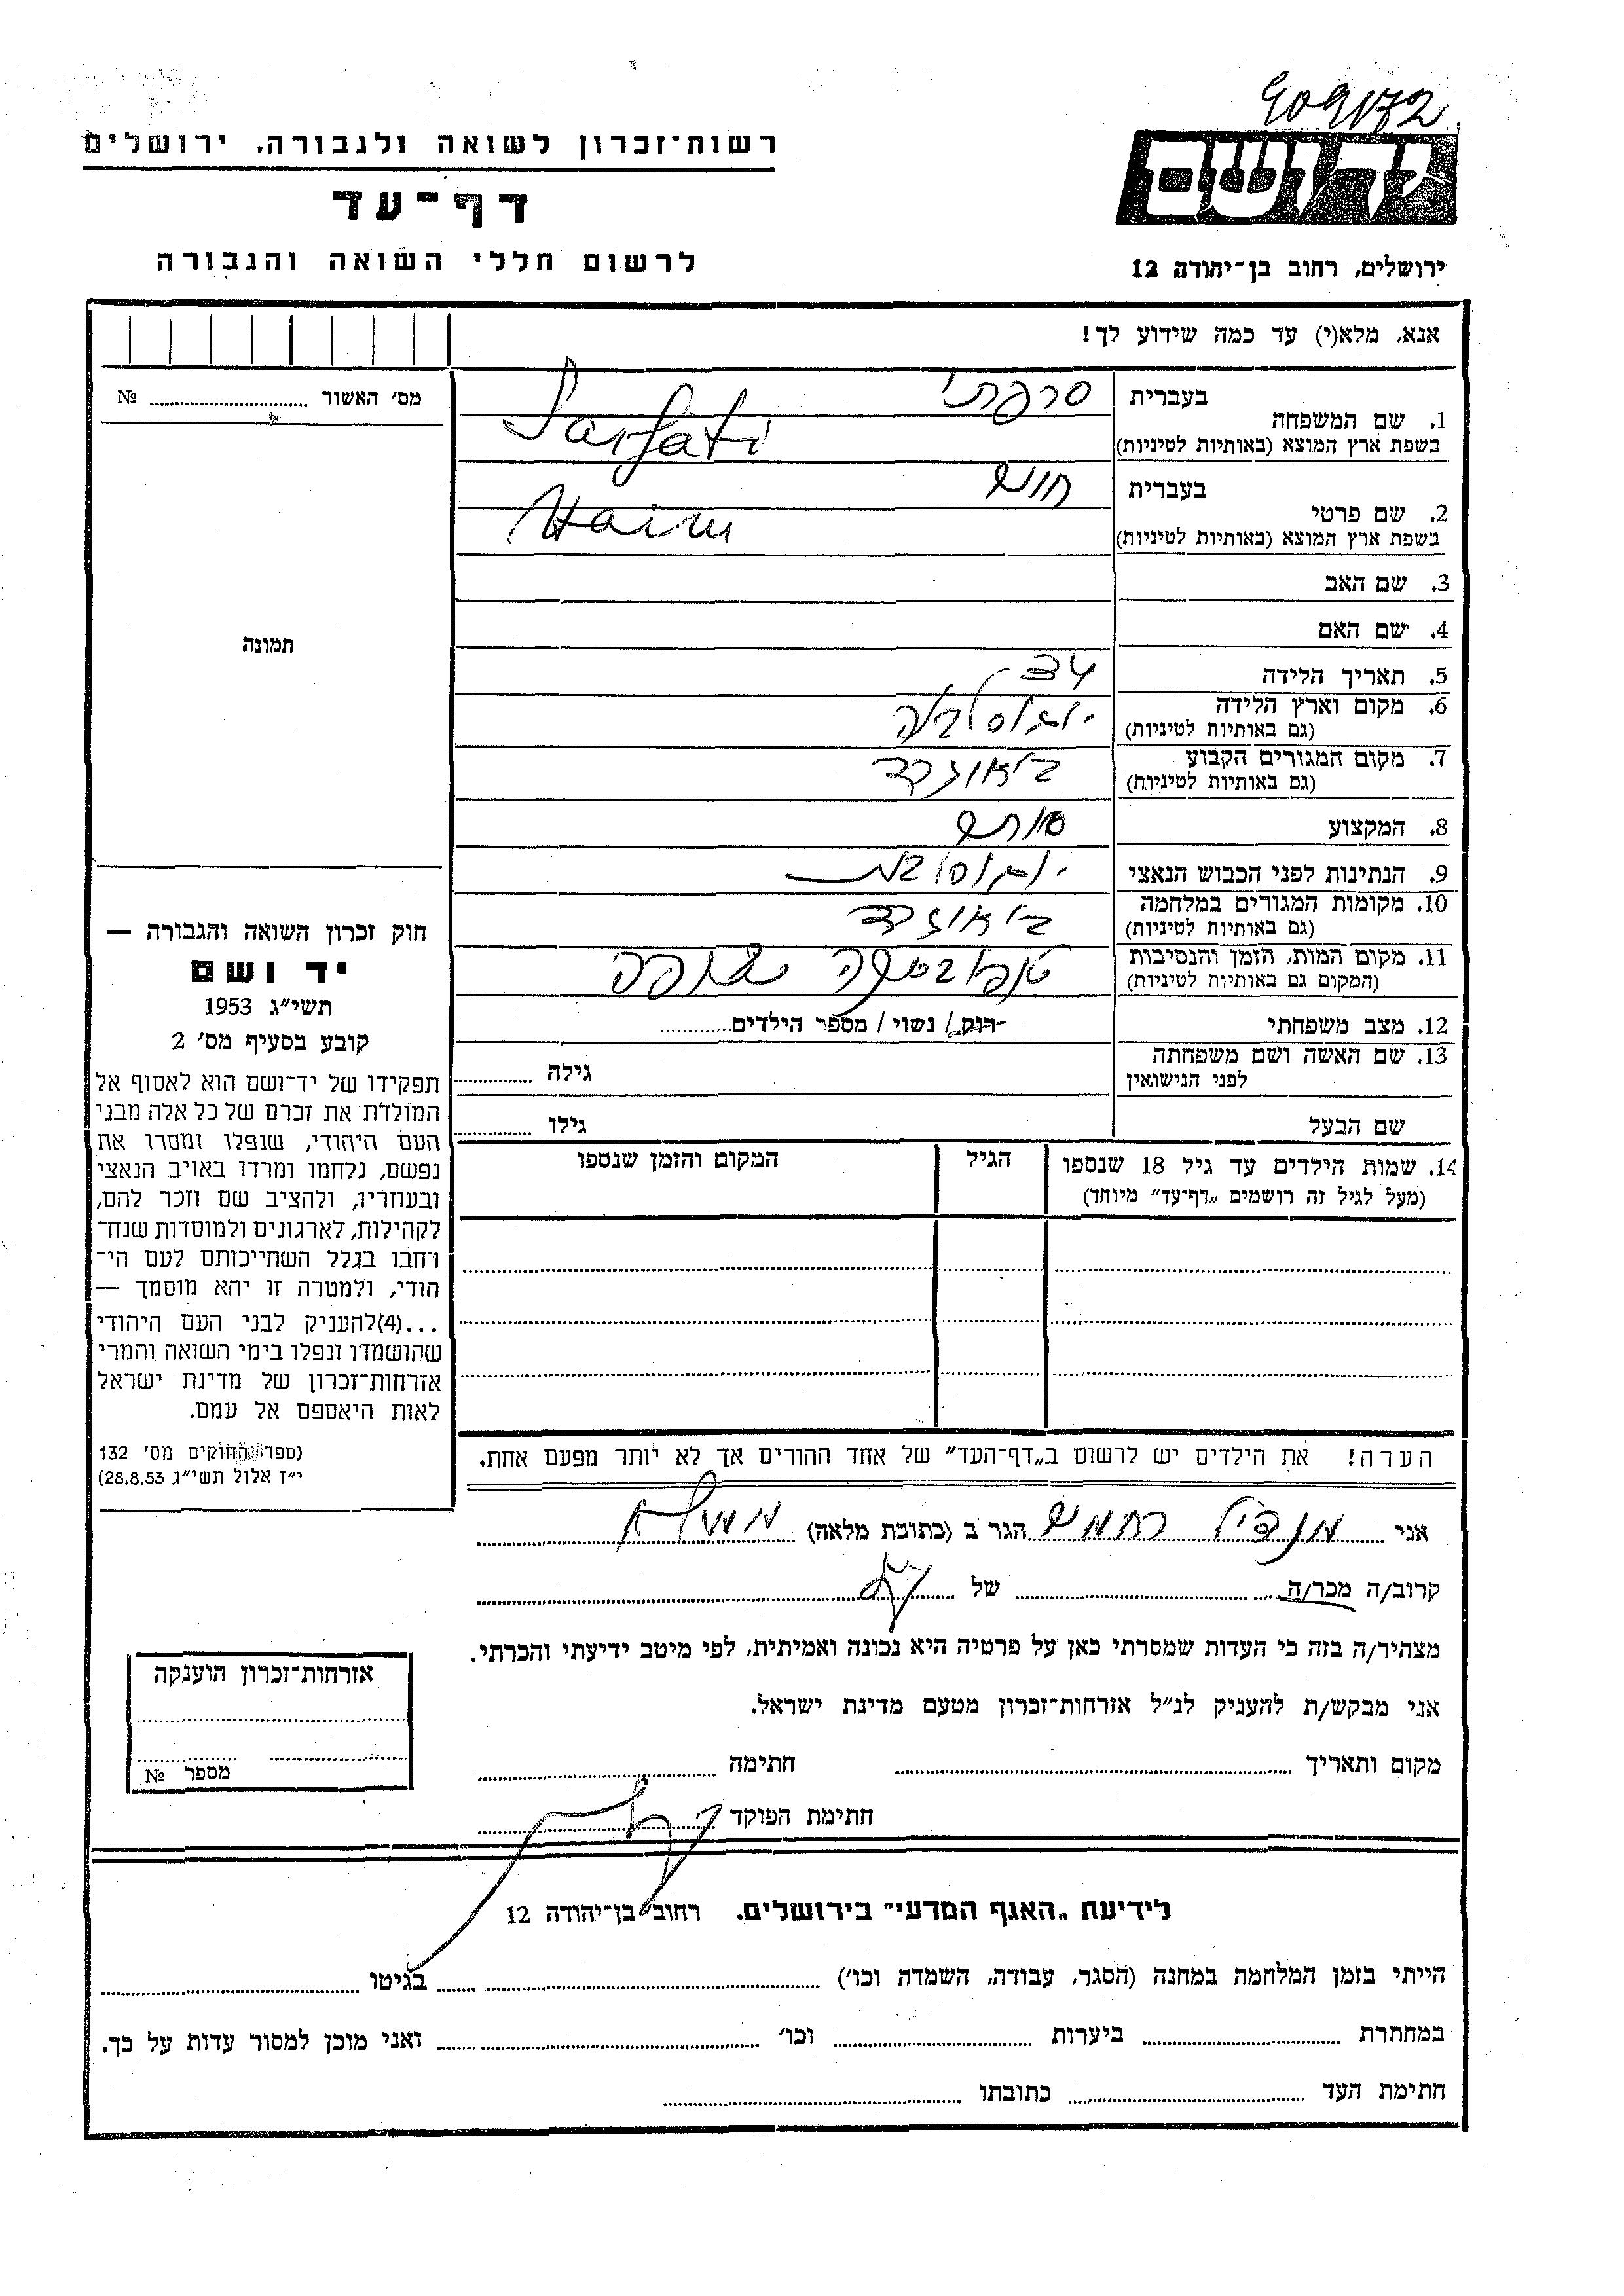 909172
יד ושם
ירושלים, רחוב בן־יהודה 12
רשות־זכרון לשואה ולגבורה, ירושלים
דף־עד
לרשום חללי השואה והגבורה
אנא, מלא(י) עד כמה שידוע לך!
1. שם המשפחה
בעברית סרפתי
בשפת ארץ המוצא (באותיות לטיניות) Sarfati
2. שם פרטי
בעברית חיים
בשפת ארץ המוצא (באותיות לטיניות) Haim
3. שם האב
4. שם האם
5. תאריך הלידה 34
6. מקום וארץ הלידה יוגוסלביה
(גם באותיות לטיניות)
7. מקום המגורים הקבוע ביאוגרד
(גם באותיות לטיניות)
8. המקצוע סוחר
9. הנתינות לפני הכבוש הנאצי יוגוסלבית
10. מקומות המגורים במלחמה ביאוגרד
(גם באותיות לטיניות)
11. מקום המות, הזמן והנסיבות
(המקום גם באותיות לטיניות)
12. מצב משפחתי רוק/ נשוי / מספר הילדים
13. שם האשה ושם משפחתה
לפני הנישואין
גילה
שם הבעל
גילו
14. שמות הילדים עד גיל 18 שנספו
(מעל לגיל זה רושמים „דף־עד” מיוחד)
הגיל
המקום והזמן שנספו
הערה! את הילדים יש לרשום ב„דף־העד” של אחד ההורים אך לא יותר מפעם אחת.
מס׳ האשור № 
תמונה
חוק זכרון השואה והגבורה —
יד ושם
תשי״ג 1953
קובע בסעיף מס׳ 2
תפקידו של יד־ושם הוא לאסוף אל
המולדת את זכרם של כל אלה מבני
העם היהודי, שנפלו ומסרו את
נפשם, נלחמו ומרדו באויב הנאצי
ובעוזריו, ולהציב שם וזכר להם,
לקהילות, לארגונים ולמוסדות שנח־
רחבו בגלל השתייכותם לעם הי־
הודי, ולמטרה זו יהא מוסמך —
...(4)להעניק לבני העם היהודי
שהושמדו ונפלו בימי השואה והמרי
אזרחות־זכרון של מדינת ישראל
לאות היאספם אל עמם.
(ספר החוקים מס׳ 132
י״ז אלול תשי״ג 28.8.53)
אני מנדיל רחמים הגר ב (כתובת מלאה)
קרוב/ה מכר/ה של
מצהיר/ה בזה כי העדות שמסרתי כאן על פרטיה היא נכונה ואמיתית, לפי מיטב ידיעתי והכרתי.
אני מבקש/ת להעניק לנ״ל אזרחות־זכרון מטעם מדינת ישראל.
מקום ותאריך חתימה
חתימת הפוקד
אזרחות־זכרון הוענקה
מספר №
לידיעת „האגף המדעי” בירושלים, רחוב בן־יהודה 12
הייתי בזמן המלחמה במחנה (הסגר, עבודה, השמדה וכו׳) בגיטו
במחתרת ביערות וכו׳ ואני מוכן למסור עדות על כך.
חתימת העד כתובתו